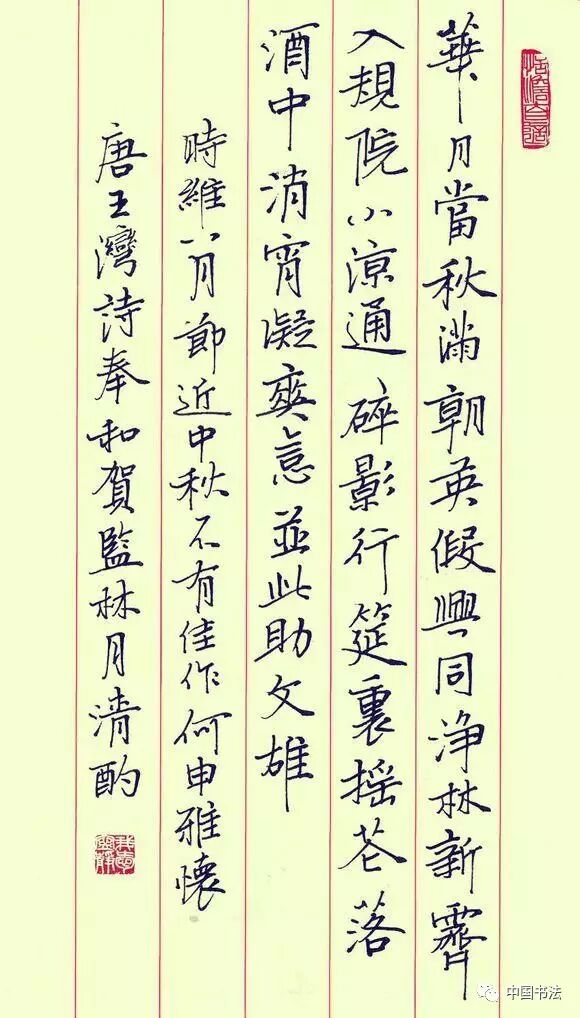 華月當秋滿朝英假興同净林新霽
入規院小涼通碎影行筵裏摇花落
酒中消宵凝爽意並此助文雄
時維八月節近中秋不有佳作何申雅懷
唐王灣詩奉和賀監林月清酌
中国书法